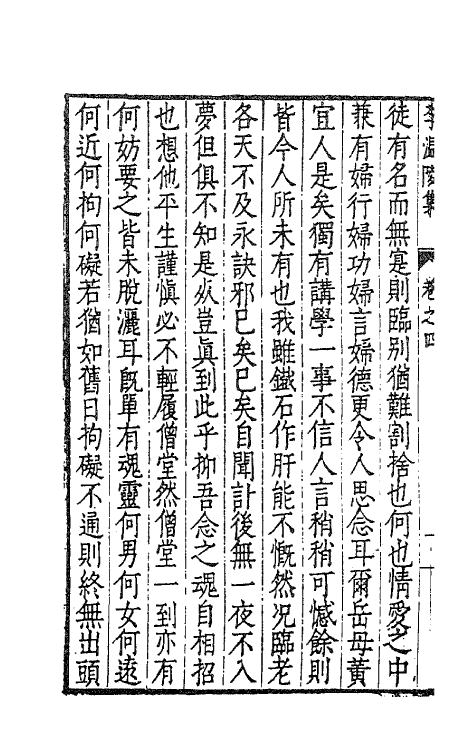 李温陵集 卷之四
徒有名而無寔則臨别猶難割捨也何也情愛之中
蒹有婦行婦功婦言婦德更令人思念耳爾岳母黄
宜人是矣獨有講學一事不信人言稍稍可憾餘則
皆今人所未有也我雖鐵石作肝能不慨然况臨老
各天不及永訣邪巳矣巳矣自聞訃後無一夜不入
夢但俱不知是㱔豈真到此乎抑吾念之魂自相招
也想他平生謹慎必不輕履僧堂然僧堂一到亦有
何妨要之皆未脱灑耳既單有魂靈何男何女何遠
何近何拘何礙若猶如舊日拘礙不通則終無出頭